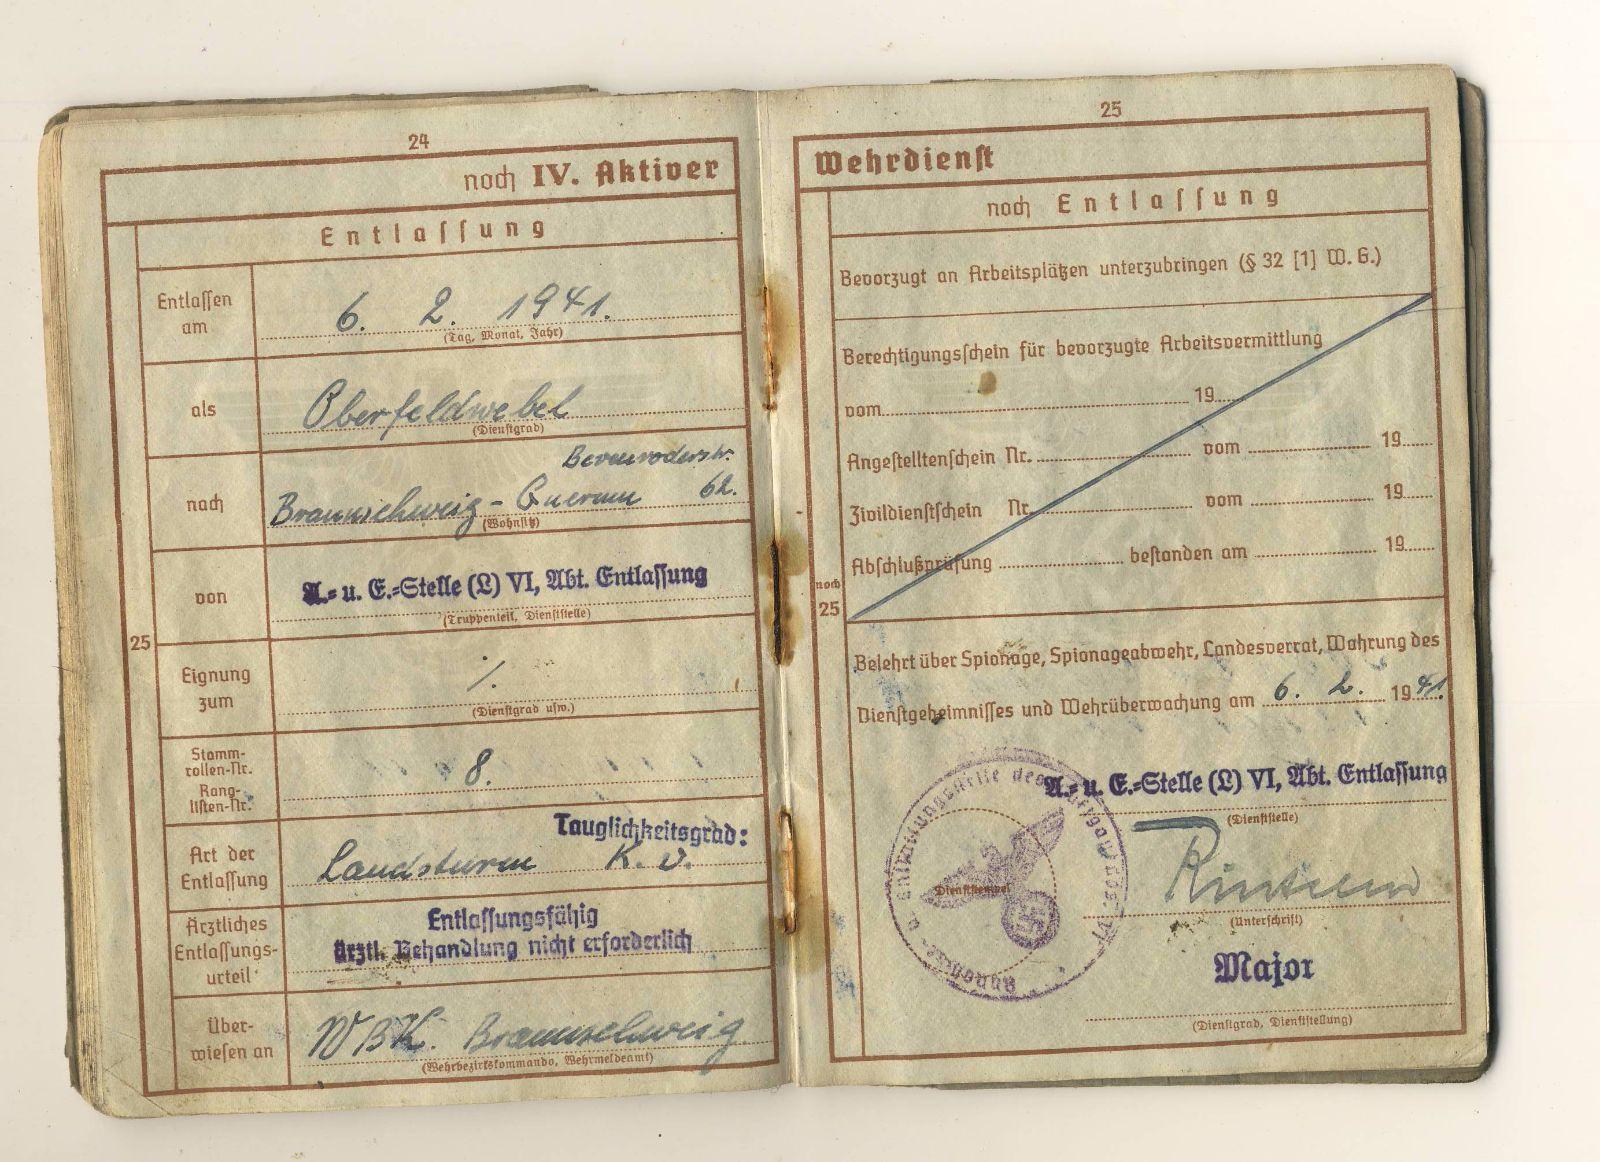 24
noch IV. Aktiver
Entlassung
Entlassen am
6. 2. 1941.
(Tag, Monat, Jahr)
als
Oberfeldwebel
(Dienstgrad)
nach
Bevenroderstr.
Braunschweig - Querum 62.
(Wohnsitz)
von
A.- u. E.-Stelle (L) VI, Abt. Entlassung
(Truppenteil, Dienststelle)
25
Eignung zum
⁒
(Dienstgrad usw.)
Stamm-
rollen-Nr.
Rang-
listen-Nr.
8.
Tauglichkeitsgrad:
Art der Entlassung
Landsturm K. v.
Ärztliches
Entlassungs-
urteil
Entlassungsfähig
ärztl. Behandlung nicht erforderlich
Über-
wiesen an
WBK. Braunschweig
(Wehrbezirkskommando, Wehrmeldeamt)
25
Wehrdienst
noch Entlassung
Bevorzugt an Arbeitsplätzen unterzubringen (§ 32 [1] W. G.)
Berechtigungsschein für bevorzugte Arbeitsvermittlung
vom 19
Angestelltenschein Nr. vom 19
Zivildienstschein Nr. vom 19
Abschlußprüfung bestanden am 19
noch
25
Belehrt über Spionage, Spionageabwehr, Landesverrat, Wahrung des
Dienstgeheimnisses und Wehrüberwachung am 6. 2. 1941.
A.- u. E.-Stelle (L) VI, Abt. Entlassung
(Dienststelle)
Annahme- u. Entlassungsstelle des Luftgau
Dienststempel
(Unterschrift)
Major
(Dienstgrad, Dienststellung)